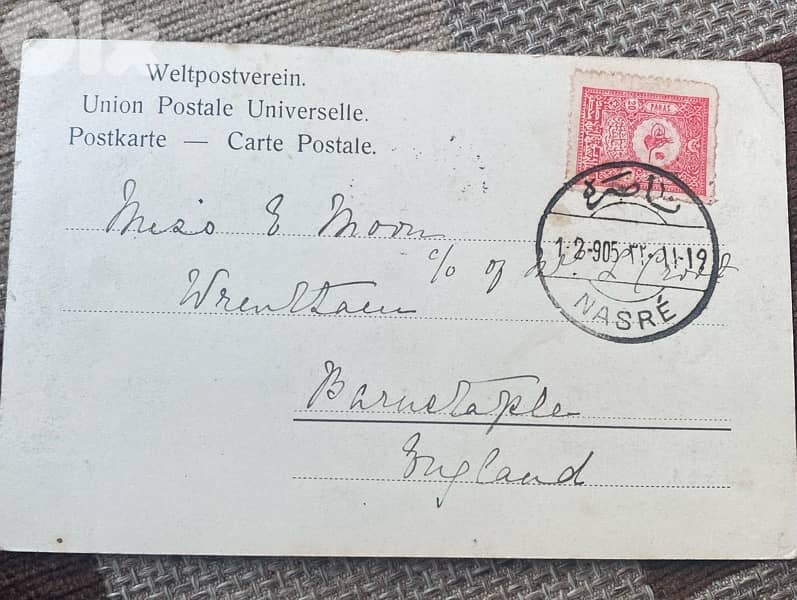 olx
Weltpostverein.
Union Postale Universelle.
Postkarte — Carte Postale.
PARAS
ناصره
1-2-905
NASRÉ
Miss E Moon
c/o of
Barnstaple
England